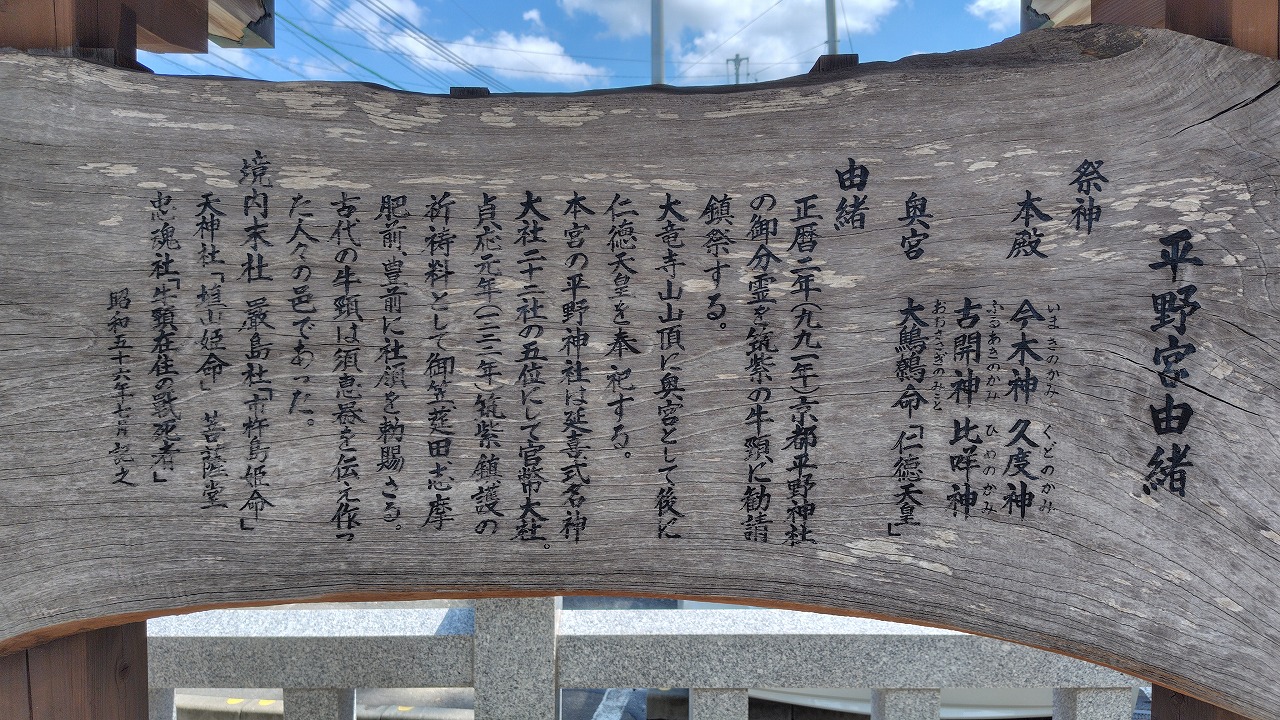 平野宮由緒
祭神
本殿 今木神 久度神
いまきのかみ くどのかみ
古開神 比咩神
ふるあきのかみ ひめのかみ
奥宮 大鷦鷯命「仁徳天皇」
おおささぎのみこと
由緒
正暦二年(九九一年)京都平野神社
の御分霊を筑紫の牛頸に勧請
鎮祭する。
大竜寺山山頂に奥宮として後に
仁徳天皇を奉祀する。
本宮の平野神社は延喜式名神
大社二十二社の五位にして官幣大社。
貞応元年(一二二二年)筑紫鎮護の
祈祷料として御笠莚田志摩
肥前、豊前に社領を勅賜さる。
古代の牛頸は須恵器を伝え作っ
た人々の邑であった。
境内末社 厳島社「市杵島姫命」
天神社「埴山姫命」 菩薩堂
忠魂社「牛頸在住の戦死者」
昭和五十六年七月 記之